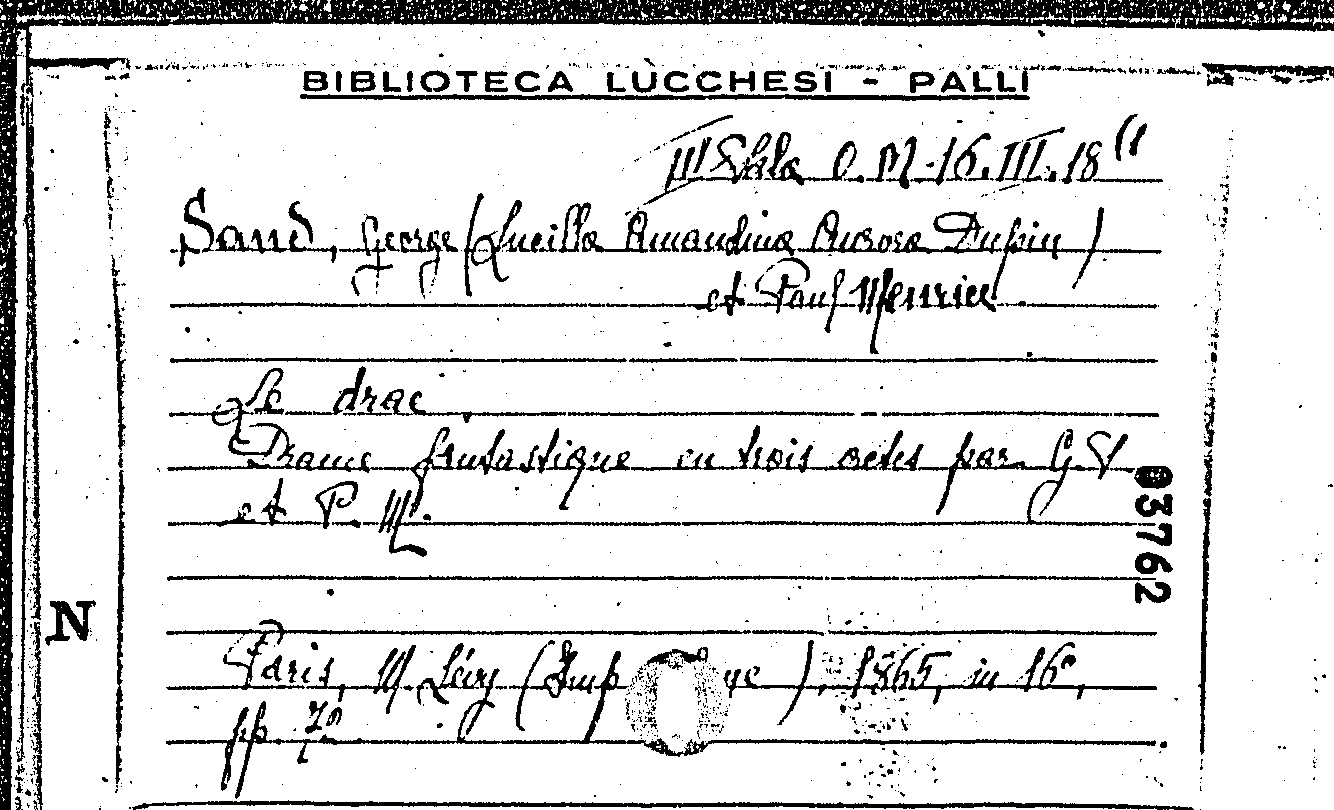 BIBLIOTECA LUCCHESI - PALLI
III Sala O. M. 16. III. 18 (1
Sand, George (Lucilla Amandina Aurora Dupin)
et Paul Meurice.
Le drac.
Drame fantastique en trois actes par G. S.
et P. M.
03762
N
Paris, M. Lévy (Imp ), 1865, in 16°,
pp.